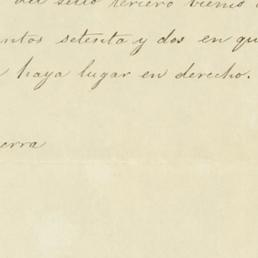 del sello tercero bienio
entos setenta y dos en qu
haya lugar en derecho.
erra